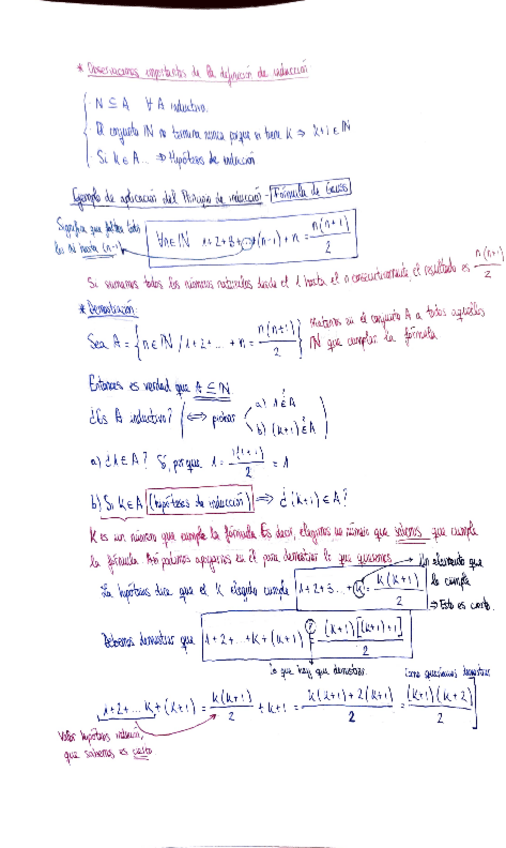 * Observaciones importantes de la definición de inducción
· N ⊆ A ∀ A inductivo.
· El conjunto ℕ no termina nunca porque si tiene K ⇒ K+1 ∈ ℕ
· Si K ∈ A... ⇒ Hipótesis de inducción
Ejemplo de aplicación del Principio de inducción - Fórmula de Gauss
Significa que faltan todos los ℕ hasta (n-1)
∀n ∈ ℕ 1+2+3+...+(n-1)+n = n(n+1)/2
Si sumamos todos los números naturales desde el 1 hasta el n consecutivamente, el resultado es n(n+1)/2
* Demostración:
Sea A = {n ∈ ℕ / 1+2+... +n = n(n+1)/2} Metemos en el conjunto A a todos aquellos
ℕ que cumplan la fórmula
Entonces es verdad que A ⊆ ℕ
¿Es A inductivo? ⇔ probar a) 1 ∈? A
b) (K+1) ∈? A
a) ¿1 ∈ A? Sí, porque 1 = 1(1+1)/2 = 1
b) Si K ∈ A (hipótesis de inducción) ⇒ ¿(K+1) ∈ A?
K es un número que cumple la fórmula. Es decir, elegimos un número que sabemos que cumple
la fórmula. Así podemos apoyarnos en él para demostrar lo que queremos.
La hipótesis dice que el K elegido cumple 1+2+3...+K = K(K+1)/2
Un elemento que
lo cumple
⇒ Esto es cierto.
Debemos demostrar que 1+2+...+K+(K+1) =? (K+1)[(K+1)+1]/2
lo que hay que demostrar.
Como queríamos demostrar
1+2+...K+(K+1) = K(K+1)/2 + K+1 = K(K+1)+2(K+1)/2 = (K+1)(K+2)/2
Valor hipótesis inducción,
que sabemos es cierto